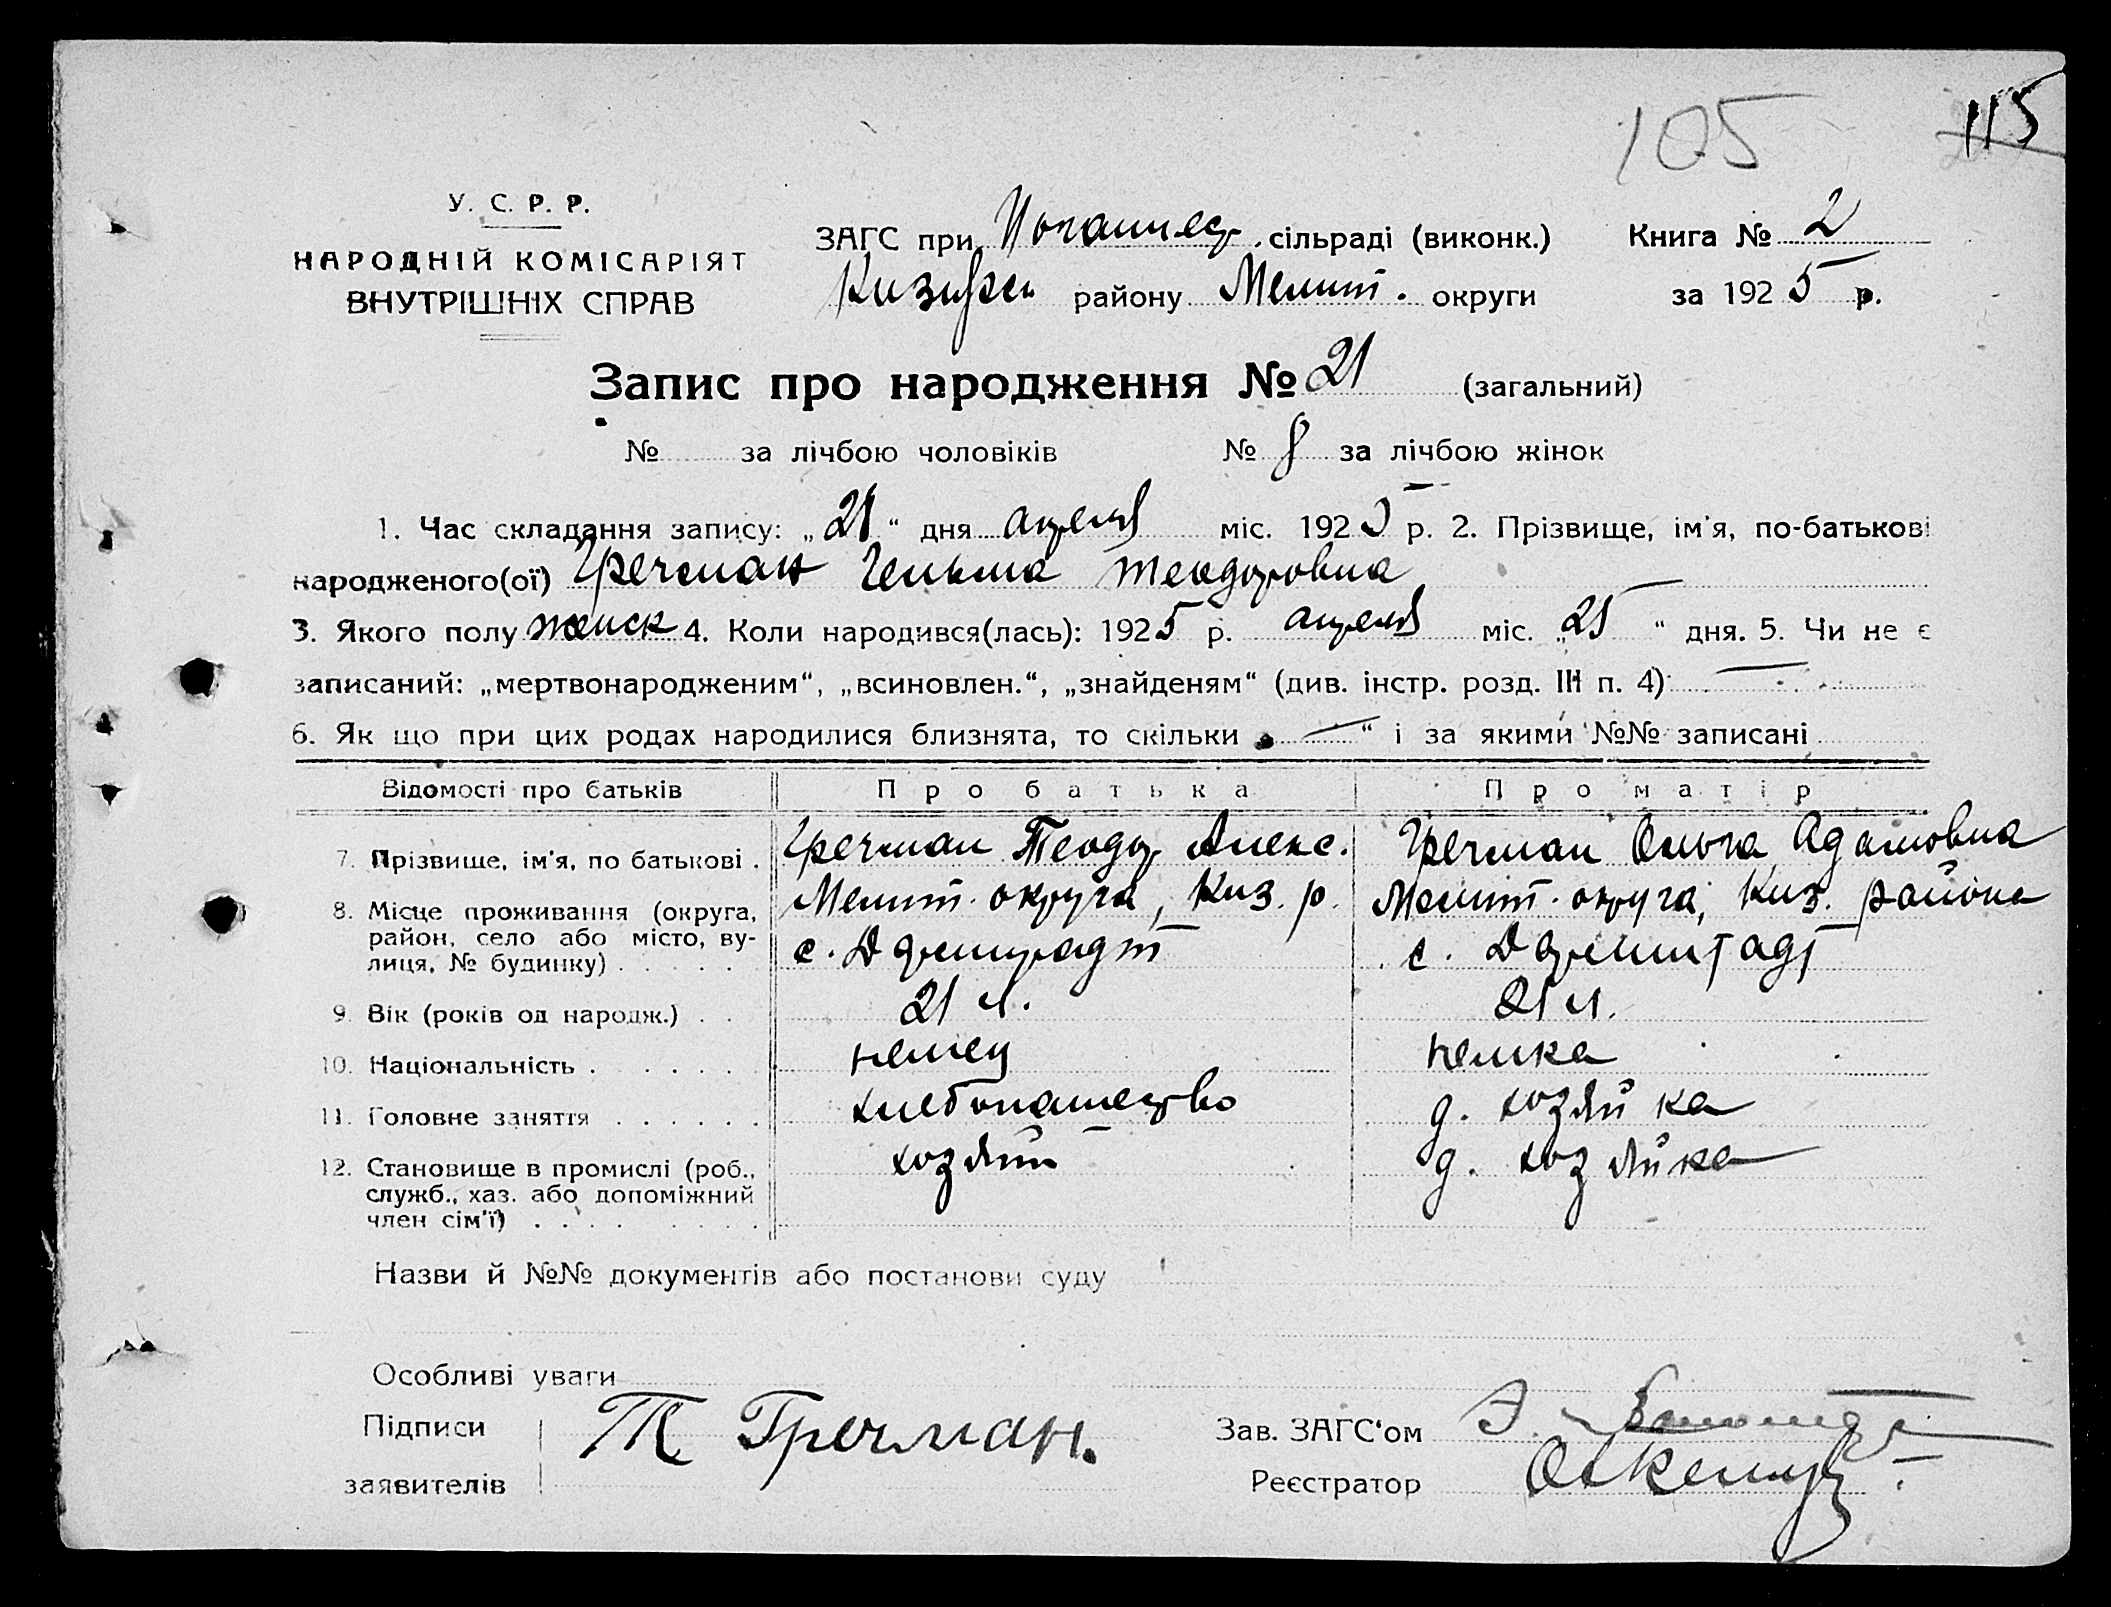 105
115
У. С. Р. Р.
НАРОДНІЙ КОМІСАРІЯТ
ВНУТРІШНІХ СПРАВ
ЗАГС при сільраді (виконк.)
району Мелит. округи
Книга № 2
за 1925 р.
Запис про народження № 21 (загальний)
№ за лічбою чоловіків № 8 за лічбою жінок
1. Час складання запису: „21“ дня апреля міс. 1925 р. 2. Прізвище, ім'я, по-батькові
народженого(ої) Гречман Гельма Теодоровна
3. Якого полу женск 4. Коли народився(лась): 1925 р. апреля міс. „ “ дня. 5. Чи не є
записаний: „мертвонародженим“, „всиновлен.“, „знайденям“ (див. інстр. розд. III п. 4) —
6. Як що при цих родах народилися близнята, то скільки „—“ і за якими №№ записані
Відомості про батьків Про батька Про матір
7. Прізвище, ім'я, по батькові . Гречман Теодор Алекс. Гречман Ольга Адамовна
8. Місце проживання (округа, район, село або місто, вулиця, № будинку) . . . . . Мелит. округа, Киз. р. с. Дармштадт Мелит. округа, Киз. района с. Дармштадт
9. Вік (років од народж.) . . 21 л. 21 л.
10. Національність . . . . . . немец немка
11. Головне заняття . . . . . . хлебопашество д. хозяйка
12. Становище в промислі (роб., служб., хаз. або допоміжний член сім'ї) . . . . . . . хозяин д. хозяйка
Назви й №№ документів або постанови суду
Особливі уваги
Підписи
заявителів
Т Гречман.
Зав. ЗАГС‘ом
Реєстратор